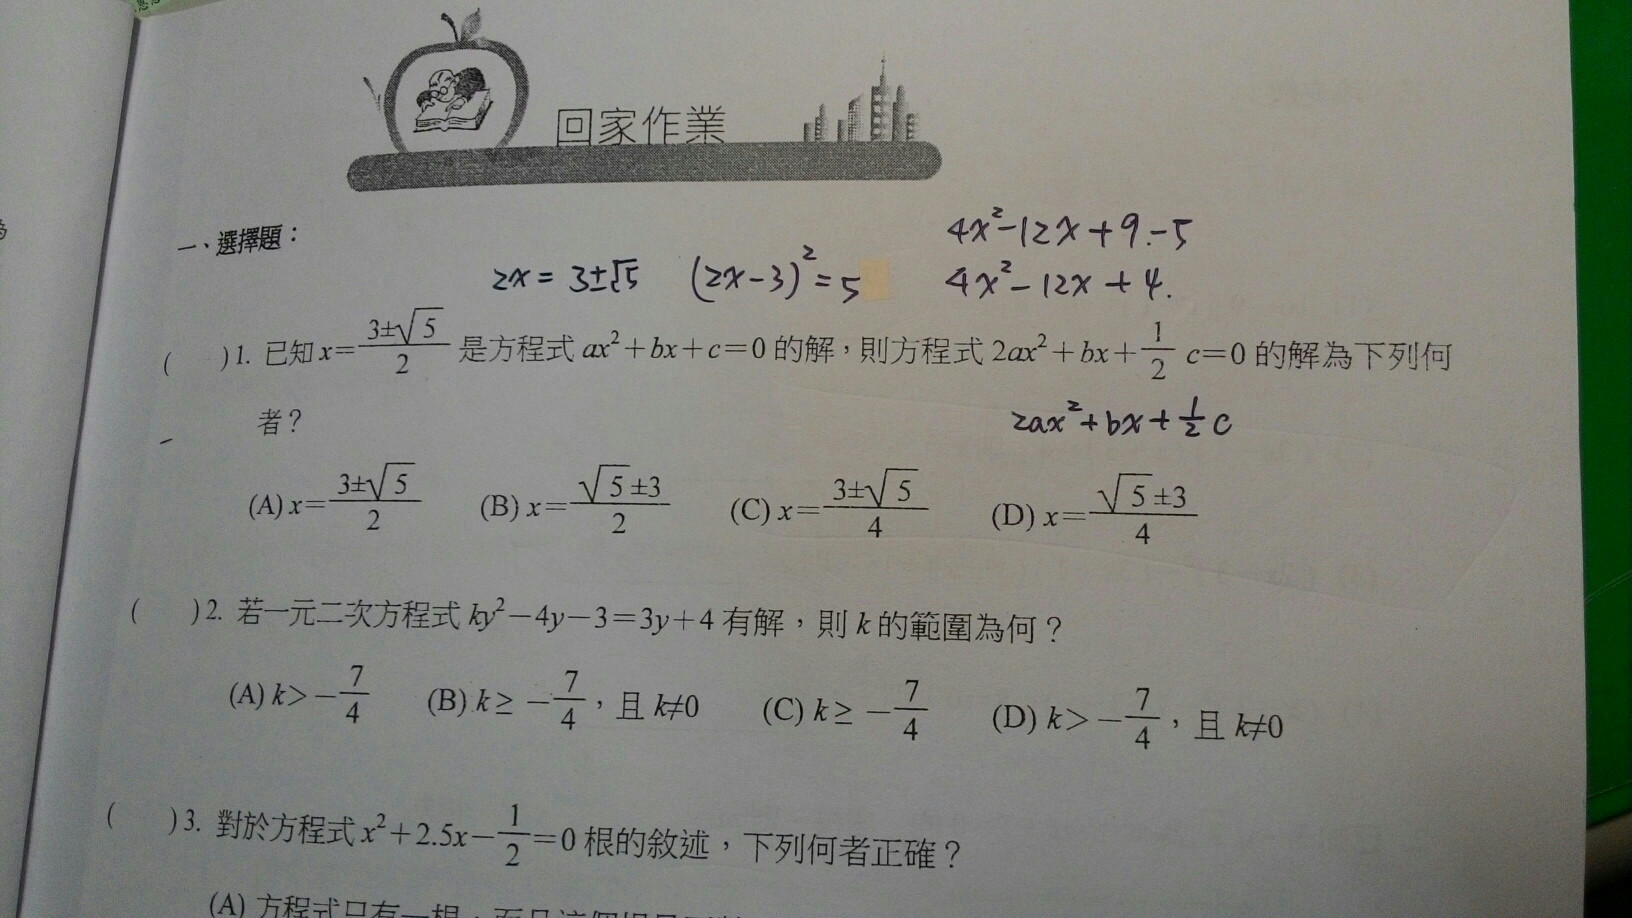 回家作業
一、選擇題：
4x²-12x+9-5
2x=3±√5 (2x-3)²=5 4x²-12x+4.
( )1. 已知x=(3±√5)/2 是方程式 ax²+bx+c=0 的解，則方程式 2ax²+bx+1/2 c=0 的解為下列何
者？ 2ax²+bx+1/2 c
(A) x=(3±√5)/2 (B) x=(√5±3)/2 (C) x=(3±√5)/4 (D) x=(√5±3)/4
( )2. 若一元二次方程式 ky²-4y-3=3y+4 有解，則 k 的範圍為何？
(A) k>-7/4 (B) k≥-7/4，且 k≠0 (C) k≥-7/4 (D) k>-7/4，且 k≠0
( )3. 對於方程式 x²+2.5x-1/2=0 根的敘述，下列何者正確？
(A) 方程式只有一根，而且這個根